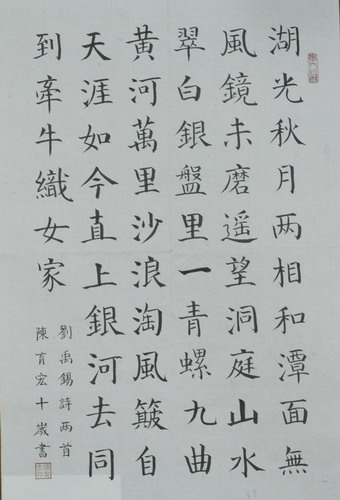 湖光秋月两相和潭面無
風鏡未磨遥望洞庭山水
翠白銀盤里一青螺九曲
黃河萬里沙浪淘風簸自
天涯如今直上銀河去同
到牽牛織女家
劉禹錫詩兩首
陳育宏十歲書